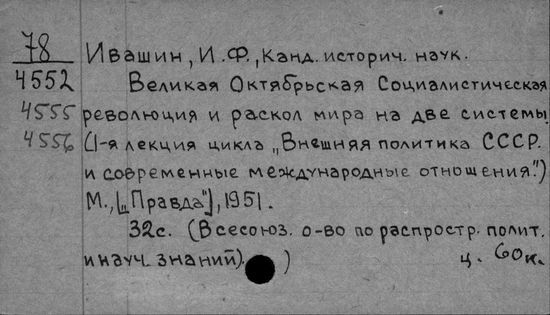 78 Ивашин, И.Ф., Канд. историч. наук.
4552 Великая Октябрьская Социалистическая
4555 революция и раскол мира на две системы
4556 (1-я лекция цикла „Внешняя политика СССР.
и современные международные отношения.")
М., [„Правда"], 1951.
32с. (Всесоюз. о-во по распростр. полит.
и науч. знаний). ) ц. 60к.